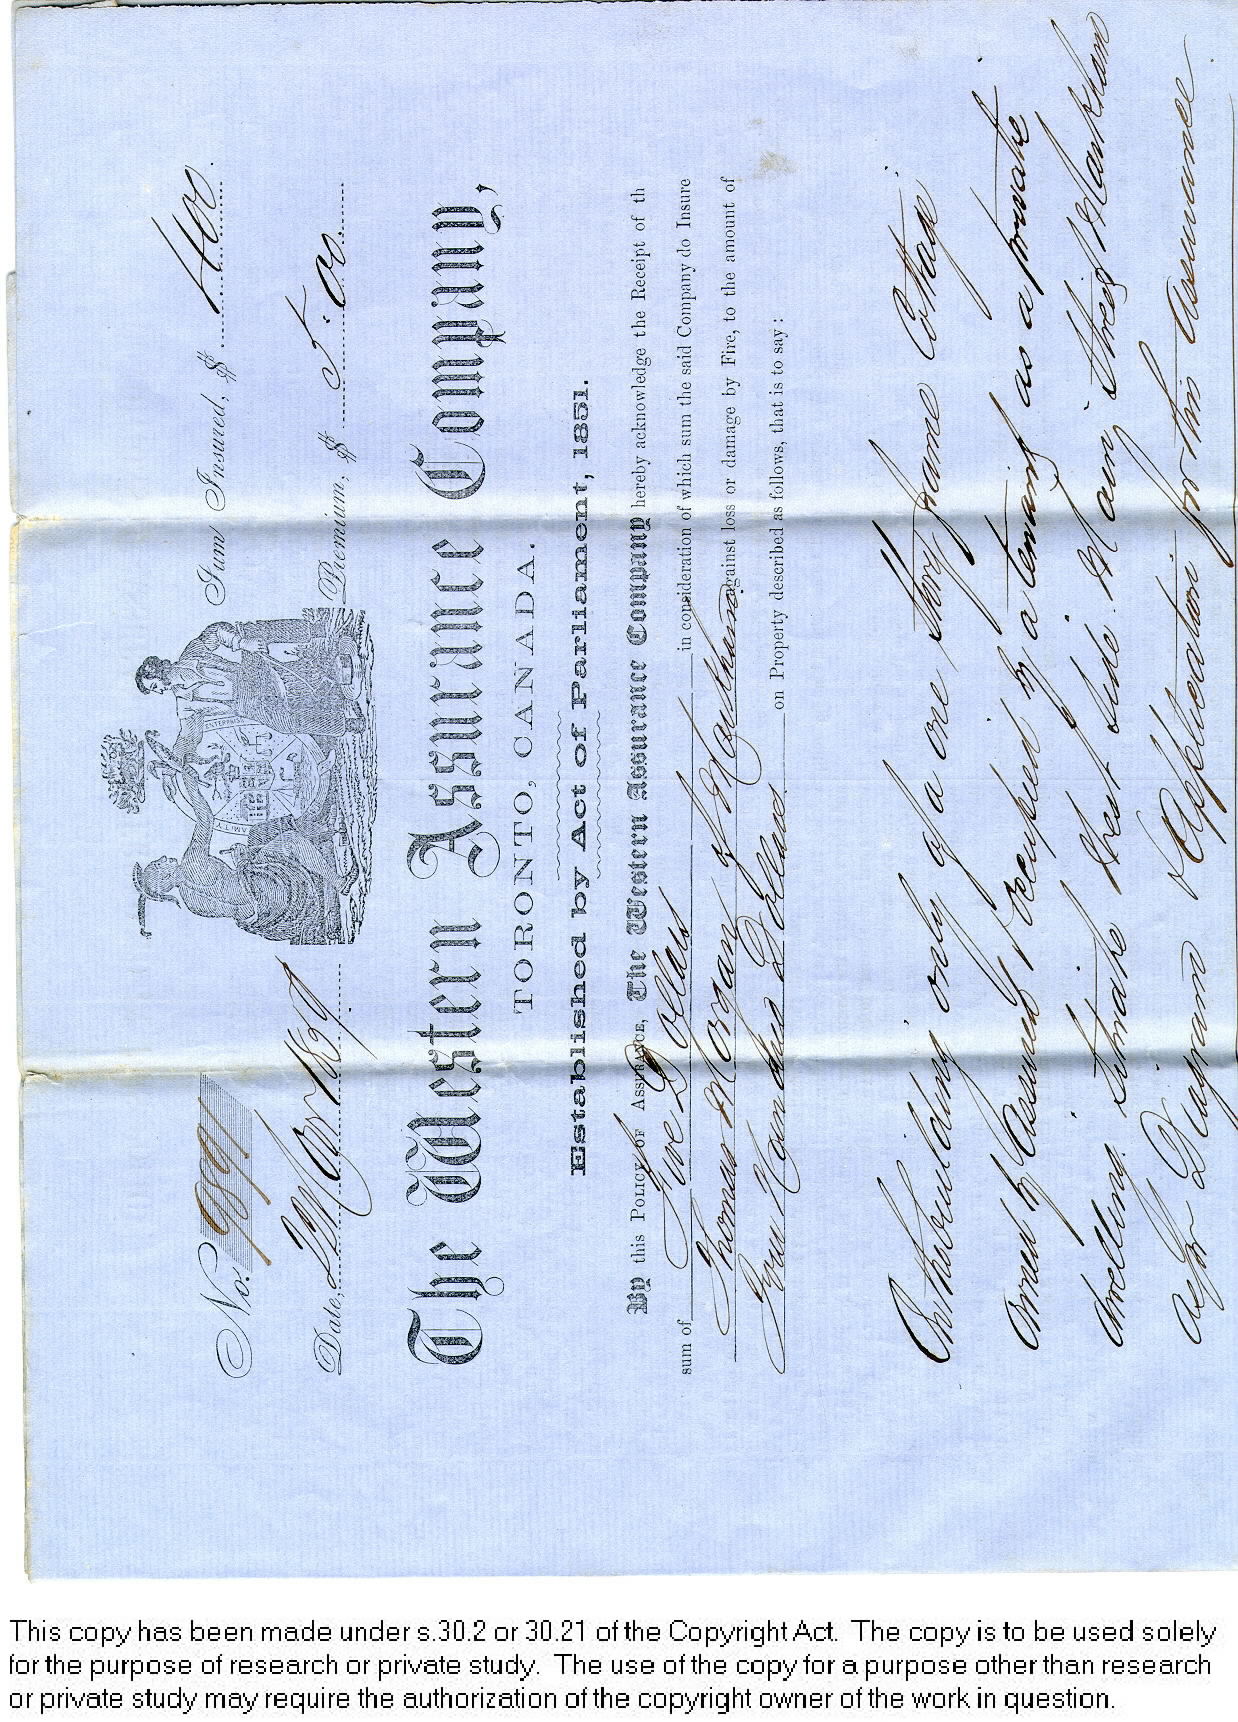 No. 9891
Sum Insured, $ 400.
Date, Mar 1859.
Premium, $ 5.00.
The Western Assurance Company,
TORONTO, CANADA.
Established by Act of Parliament, 1851.
By this POLICY OF ASSURANCE, The Western Assurance Company hereby acknowledge the Receipt of th
sum of Five Dollars in consideration of which sum the said Company do Insure
Thomas Morgan of Markham against loss or damage by Fire, to the amount of
Four Hundred Dollars on Property described as follows, that is to say:
On the building only of a one Story frame Cottage
owned by Assured & occupied by a tenant as a private
dwelling. Situate West side Main Street Markham
as for Diagram & Application for this Assurance.
This copy has been made under s.30.2 or 30.21 of the Copyright Act. The copy is to be used solely
for the purpose of research or private study. The use of the copy for a purpose other than research
or private study may require the authorization of the copyright owner of the work in question.